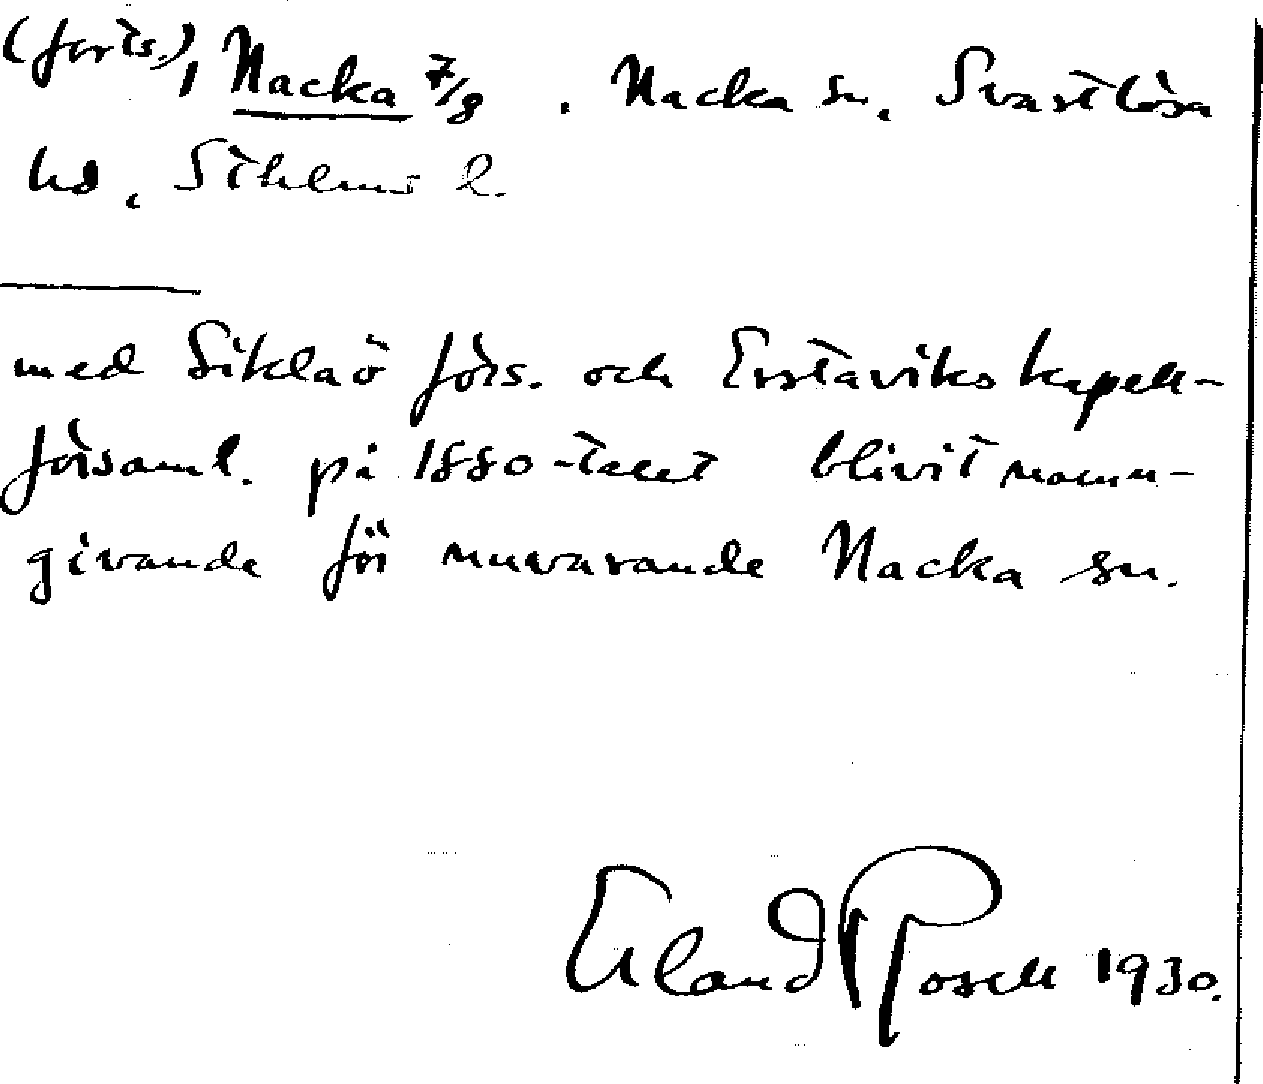 (forts.), Nacka 7/8. Nacka sn. Svartlösa
hd, Sthlms l.
med Siklaö förs. och Erstaviks kapell-
församl. på 1880-talet blivit namn-
givande för nuvarande Nacka sn.
Erland Rosell 1930.